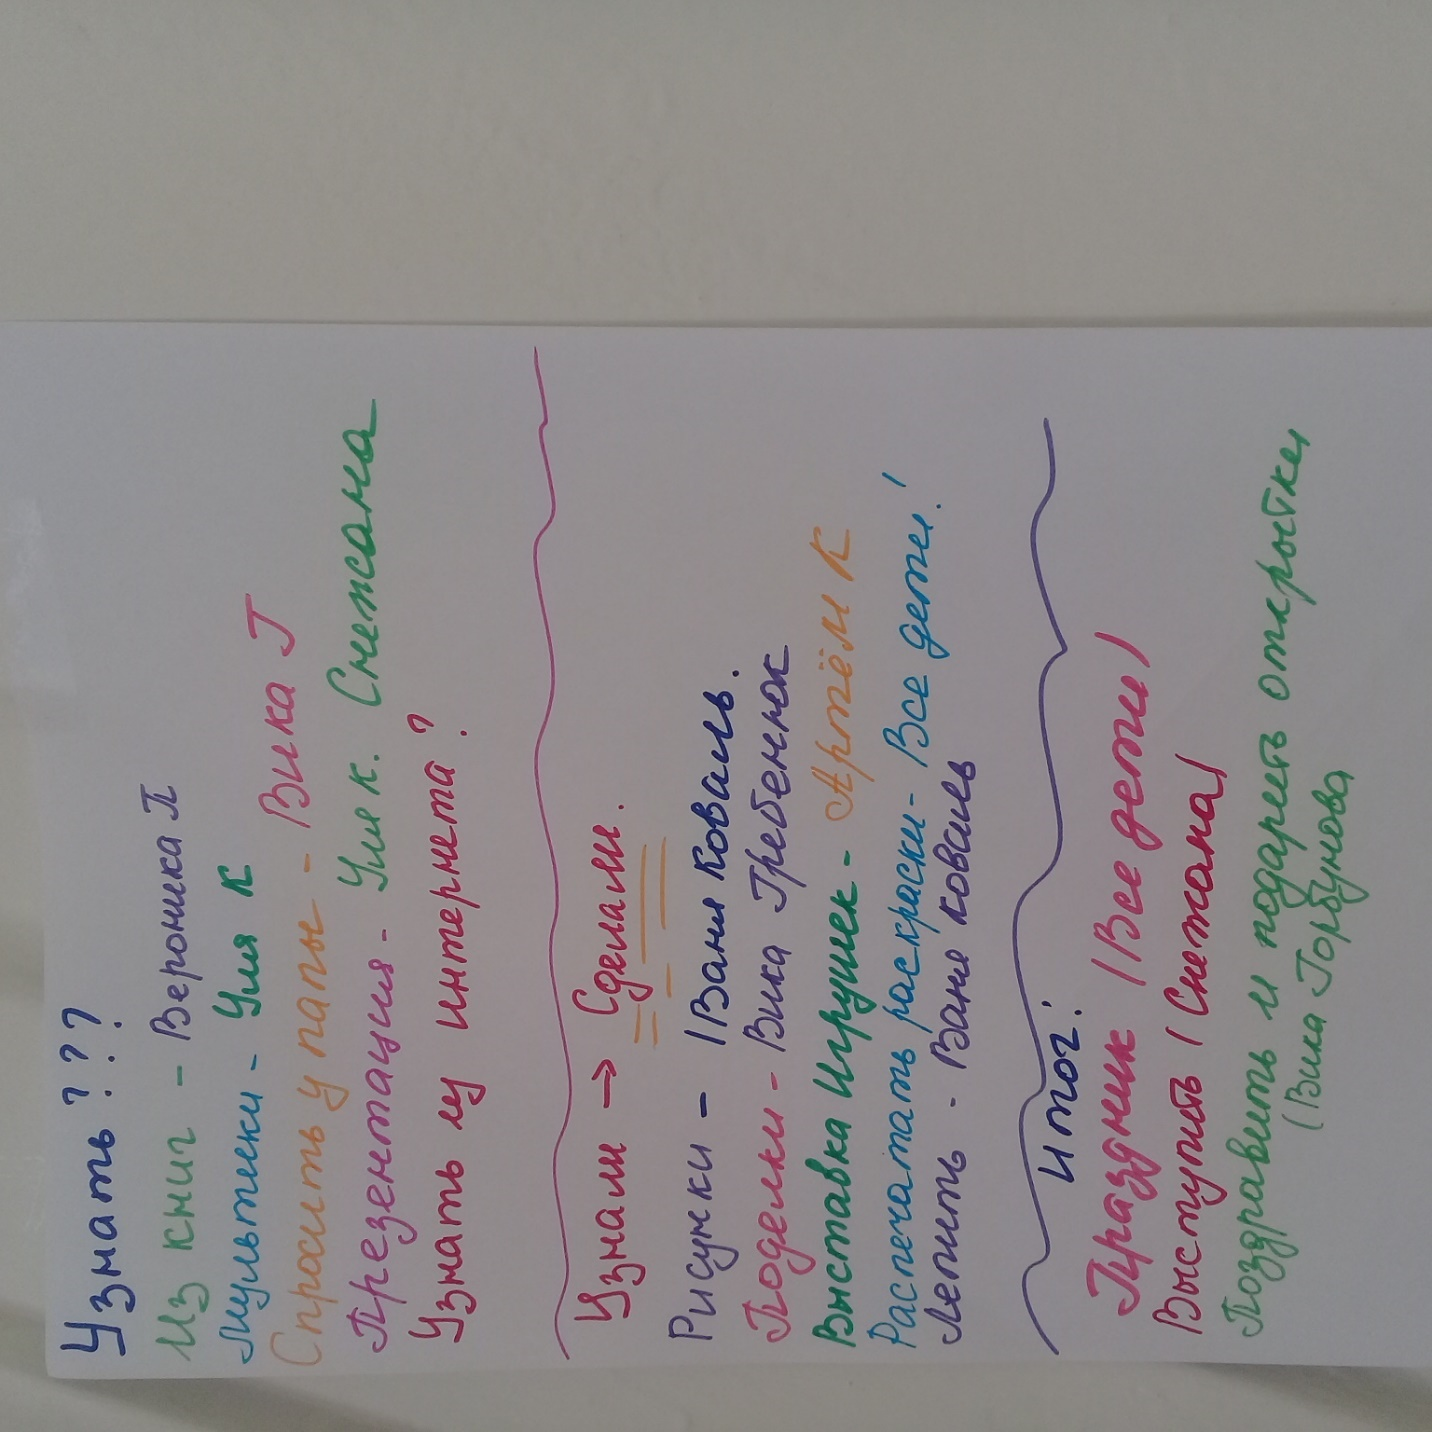 Узнать???
Из книг - Вероника П
Мультики - Уля К
Спросить у папы - Вика Г
Презентация - Уля К. Снежана
Узнать из интернета?
Узнали → Сделали.
Рисунки - (Ваня Коваль.
Поделки - Вика Гребенюк
Выставка Игрушек - Артём К
Распечатать раскраски - Все дети!
Лепить - Ваня Коваль
Итог:
Праздник (Все дети)
Выступить (Снежана)
Поздравить и подарить открытки
(Вика Горбунова